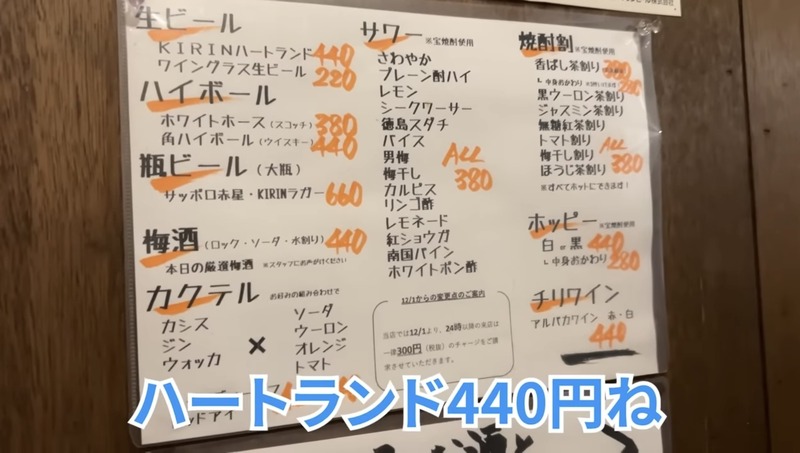 生ビール
KIRINハートランド 440
ワイングラス生ビール 220
ハイボール
ホワイトホース（スコッチ） 380
角ハイボール（ウイスキー） 440
瓶ビール（大瓶）
サッポロ赤星・KIRINラガー 660
梅酒（ロック・ソーダ・水割り） 440
本日の厳選梅酒 ※スタッフにお声がけください
カクテル お好みの組み合わせで
カシス
ジン
ウォッカ
×
ソーダ
ウーロン
オレンジ
トマト
ッドアイ
サワー ※宝焼酎使用
さわやか
プレーン酎ハイ
レモン
シークワーサー
徳島スダチ
バイス
男梅
梅干し
カルピス
リンゴ酢
レモネード
紅ショウガ
南国パイン
ホワイトポン酢
ALL
380
12/1からの変更点のご案内
当店では12/1より、24時以降の来店は
一律300円（税抜）のチャージをご請
求させていただきます。
焼酎割 ※宝焼酎使用
香ばし茶割り
└ 中身おかわり
黒ウーロン茶割り
ジャスミン茶割り
無糖紅茶割り
トマト割り
梅干し割り
ほうじ茶割り
ALL
380
※すべてホットにできます！
ホッピー ※宝焼酎使用
白 or 黒 440
└ 中身おかわり 280
チリワイン
アルパカワイン 赤・白
440
ハートランド440円ね